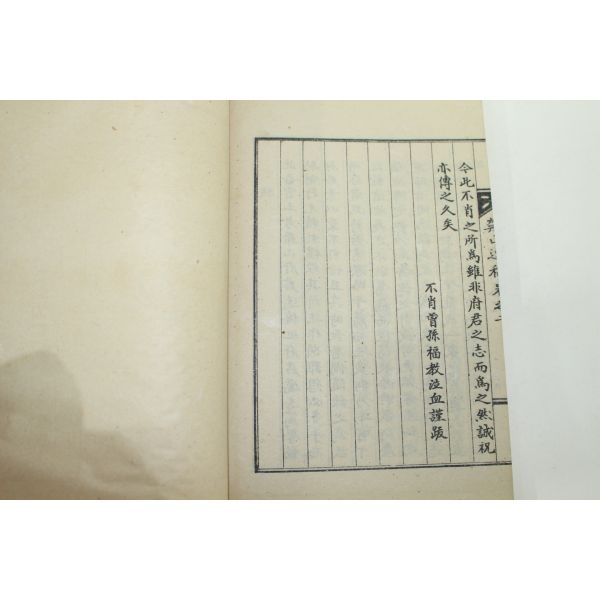 山遺稿卷之二
今此不肖之所爲雖非府君之志而爲之然誠祝
亦傳之久矣
不肖曾孫福教泣血謹跋